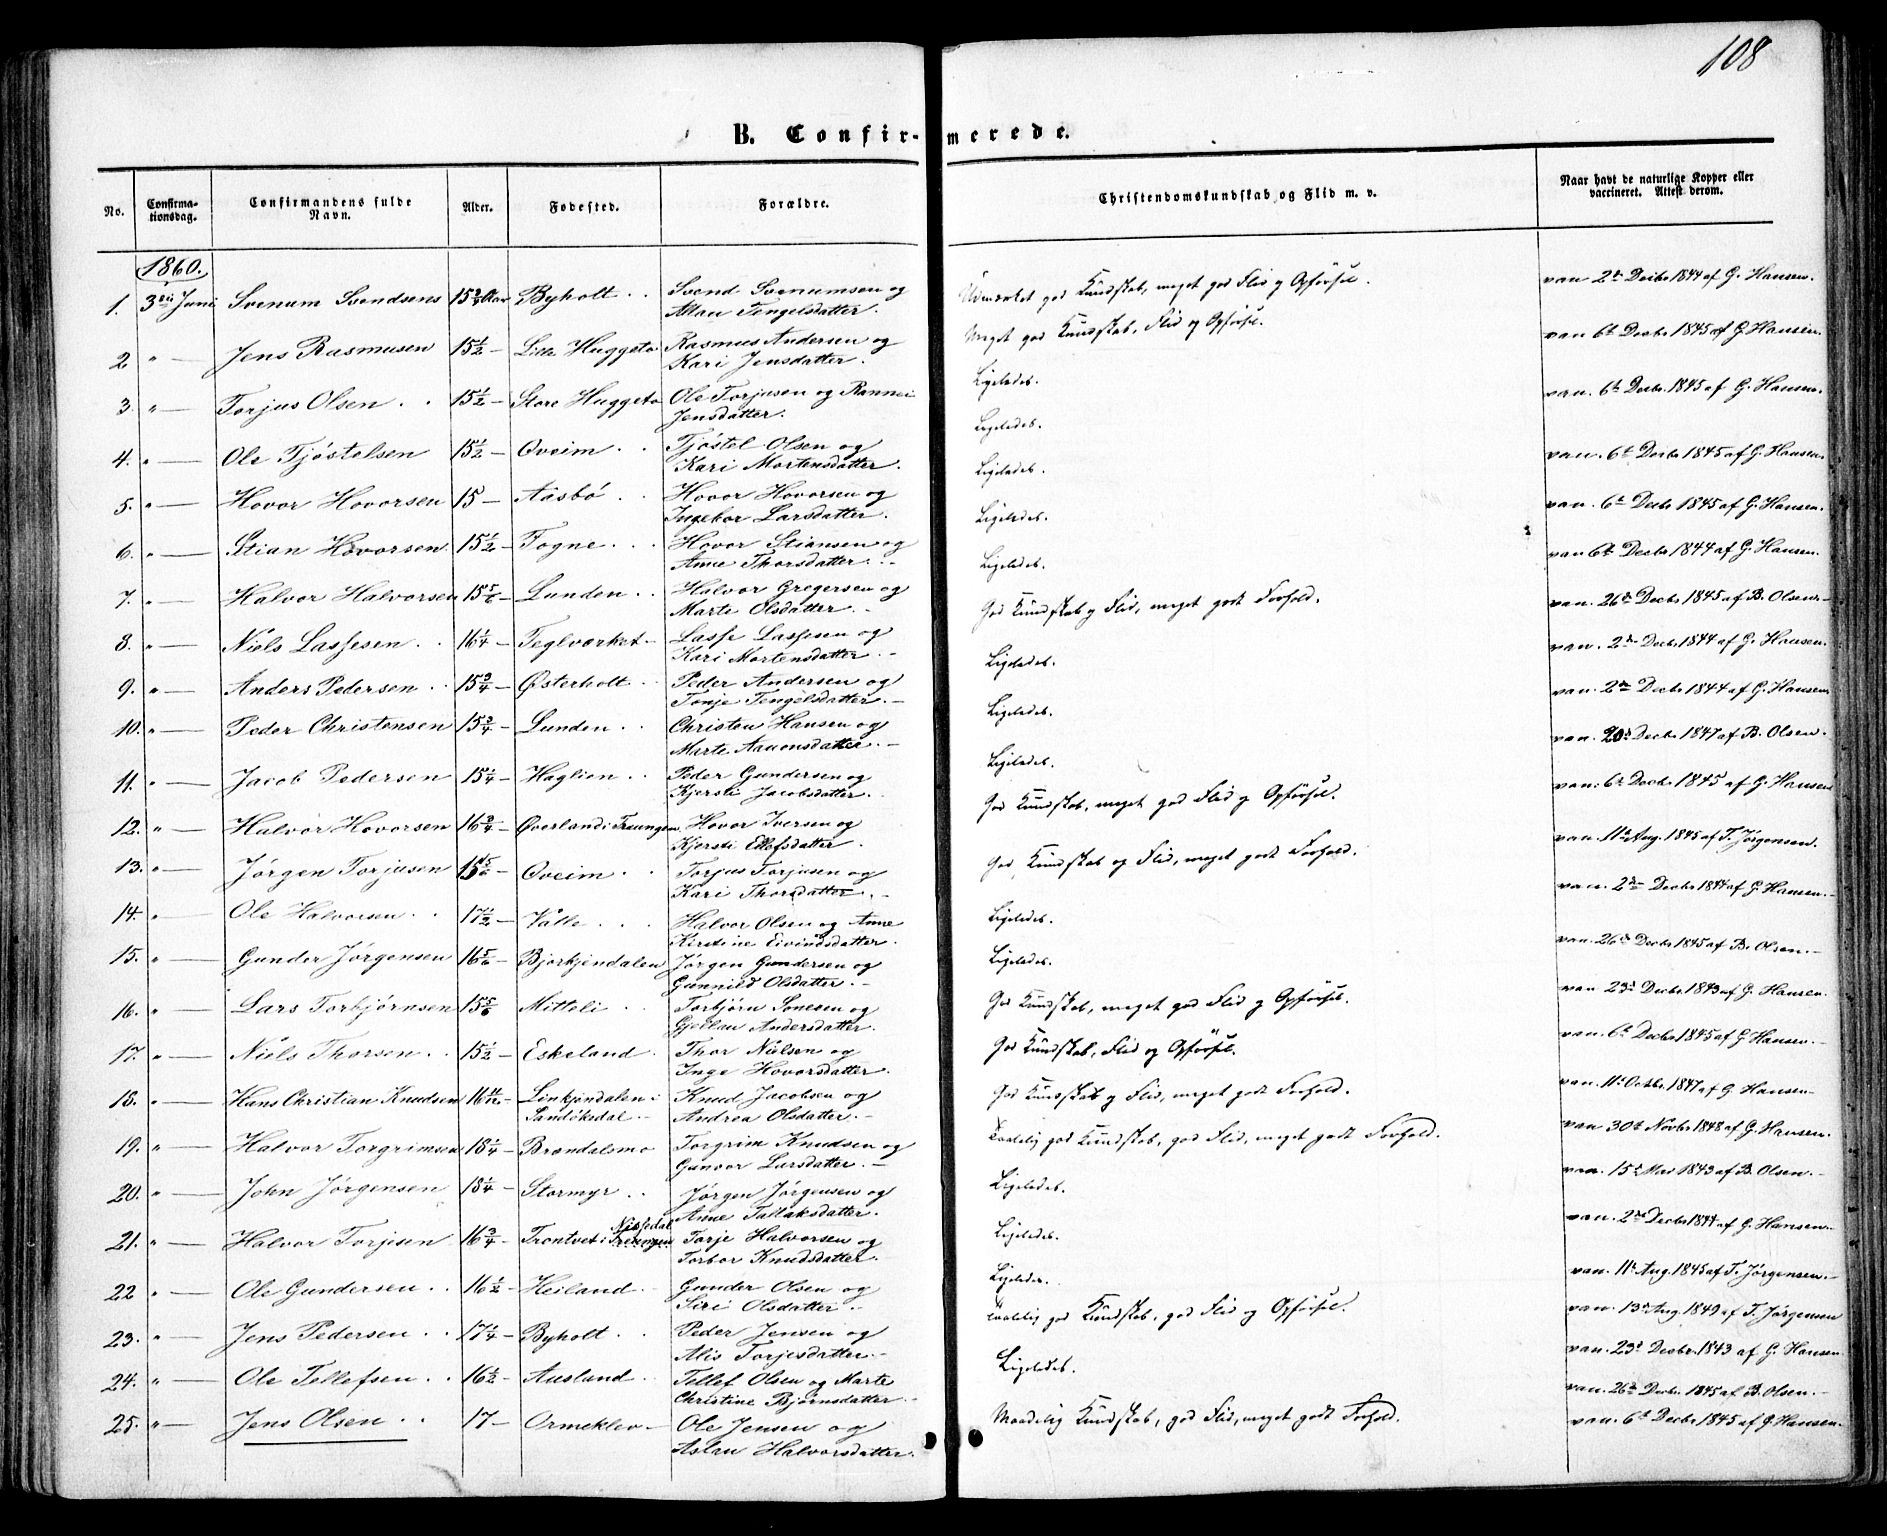 108
B. Confirmerede.
No. Confirmationsdag. Confirmandens fulde Navn. Alder. Fødested. Forældre. Christendomskundskab og Flid m. v. Naar havt de naturlige Kopper eller vaccineret. Attest derom.
1860.
1. 3die Juni Svenum Svendsens 15 3/4 Aar Byholt . . Svend Svenumsen og Allau Tengelsdatter. Udmærket god Kundskab, meget god Flid og Opførsel. van 2den Decbr 1844 af G. Hansen.
2 " — Jens Rasmusen 15 1/2 — Lille Huggeto Rasmus Andersen og Kari Jensdatter. Meget god Kundskab, Flid og Opførsel. van. 6te Decbr 1845 af G. Hansen.
3. " — Torjus Olsen . . 15 1/2 — Store Huggeto Ole Torjusen og Rannei Jensdatter. Ligeledes. van. 6te Decbr. 1845 af G. Hansen.
4. " — Ole Tjöstelsen 15 1/2 — Oveim . . Tjöstel Olsen og Kari Mortensdatter. Ligeledes. van. 6te Decbr 1845 af G. Hansen.
5. " — Hovor Hovorsen 15 — Aasbö . . Hovor Hovorsen og Ingebor Larsdatter. Ligeledes. van. 6te Decbr 1845 af G. Hansen.
6. " — Stian Hovorsen 15 1/2 — Togne . . . Hovor Stiansen og Anne Thorsdatter. Ligeledes. van 6te Decbr 1844 af G. Hansen.
7. " — Halvor Halvorsen 15 5/6 — Lunden . . Halvor Gregersen og Marte Olsdatter. Ligeledes. van. 26de Decbr 1845 af B. Olsen.
8. " — Niels Lassesen . . 16 1/4 — Teglværket Lasse Lassesen og Kari Mortensdatter. God Kundskab og Flid, meget godt Forhold. van. 2den Decbr 1844 af G. Hansen.
9. " — Anders Pedersen . . 15 3/4 — Østerholt . Peder Andersen og Tonje Tengelsdatter. Ligeledes. van. 2den Decbr 1844 af G. Hansen
10. " — Peder Christensen 15 3/4 — Lunden . . Christen Hansen og Marte Aanonsdatter. Ligeledes. van. 20de Decbr 1847 af B. Olsen.
11. " — Jacob Pedersen 15 1/4 — Haglien . . Peder Gundersen og Kjersti Jacobsdatter. Ligeledes. van. 6te Decbr 1845 af G. Hansen
12. " — Halvor Hovorsen 16 3/4 — Øverland i Treungen Hovor Iversen og Kjersti Ellefsdatter. God Kundskab, meget god Flid og Opførsel. van. 11te Aug. 1845 af T. Jørgensen.
13. " — Jørgen Torjusen 15 5/6 — Oveim . . Torjus Torjusen og Kari Thorsdatter. God Kundskab og Flid, meget godt Forhold. van. 2den Decbr 1844 af G. Hansen.
14. " — Ole Halvorsen . . 17 1/2 — Valle . . . Halvor Olsen og Anne Kirstine Eivindsdatter. Ligeledes. van. 26de Decbr 1845 af B. Olsen.
15. " — Gunder Jørgensen 16 5/6 — Bjorkjendalen Jørgen Gundersen og Gunnild Olsdatter. Ligeledes. van. 23de Decbr 1843 af G. Hansen.
16. " — Lars Torbjørnsen 15 5/6 Mitteli . . Torbjörn Tonesen og Gjellau Andersdatter. God Kundskab, meget god Flid og Opførsel. van. 6te Decbr 1845 af G. Hansen.
17. " — Niels Thorsen . . 15 1/2 — Eskeland . Thor Nielsen og Inge Hovorsdatter. God Kundskab, Flid og Opførsel. van. 11te Octbr 1847 af G. Hansen
18. " — Hans Christian Knudsen 16 11/12 — Linkjendalen i Sandöksdal . Knud Jacobsen og Andrea Olsdatter. God Kundskab og Flid, meget godt Forhold. van 30te Novbr 1848 af G. Hansen.
19. " — Halvor Torgrimsen 18 1/4 — Brændalsmo Torgrim Knudsen og Gunvor Larsdatter. Temmelig god Kundskab, god Flid, meget godt Forhold. van. 15de Mai 1843 af B. Olsen.
20. " — John Jørgensen 18 1/4 — Stormyr . . Jørgen Jørgensen og Anne Tallaksdatter. Ligeledes. van. 2den Decbr 1844 af G. Hansen.
21. " — Halvor Torjsen 16 3/4 — Trontveit i Nissedal Treungen Torje Halvorsen og Torbor Knudsdatter. Ligeledes. van. 11te Aug. 1845 af T. Jørgensen.
22 " — Ole Gundersen . . 16 1/2 — Heiland . Gunder Olsen og Siri Olsdatter. Ligeledes. van. 13de Aug 1849 af T. Jørgensen
23. " — Jens Pedersen . . 17 1/4 — Byholt . . Peder Jensen og Alis Torjesdatter. Temmelig god Kundskab, god Flid og Opførsel. van. 23de Decbr. 1843 af G. Hansen
24. " — Ole Tellefsen . . 16 1/2 — Ausland . Tellef Olsen og Marte Christine Bjørnsdatter. Ligeledes. van. 26de Decbr. 1845 af B. Olsen.
25. " — Jens Olsen . . 17 — Ormeklev — Ole Jensen og Aslau Halvorsdatter. Maadelig Kundskab, god Flid, meget godt Forhold. van. 6te Decbr 1845 af G. Hansen.